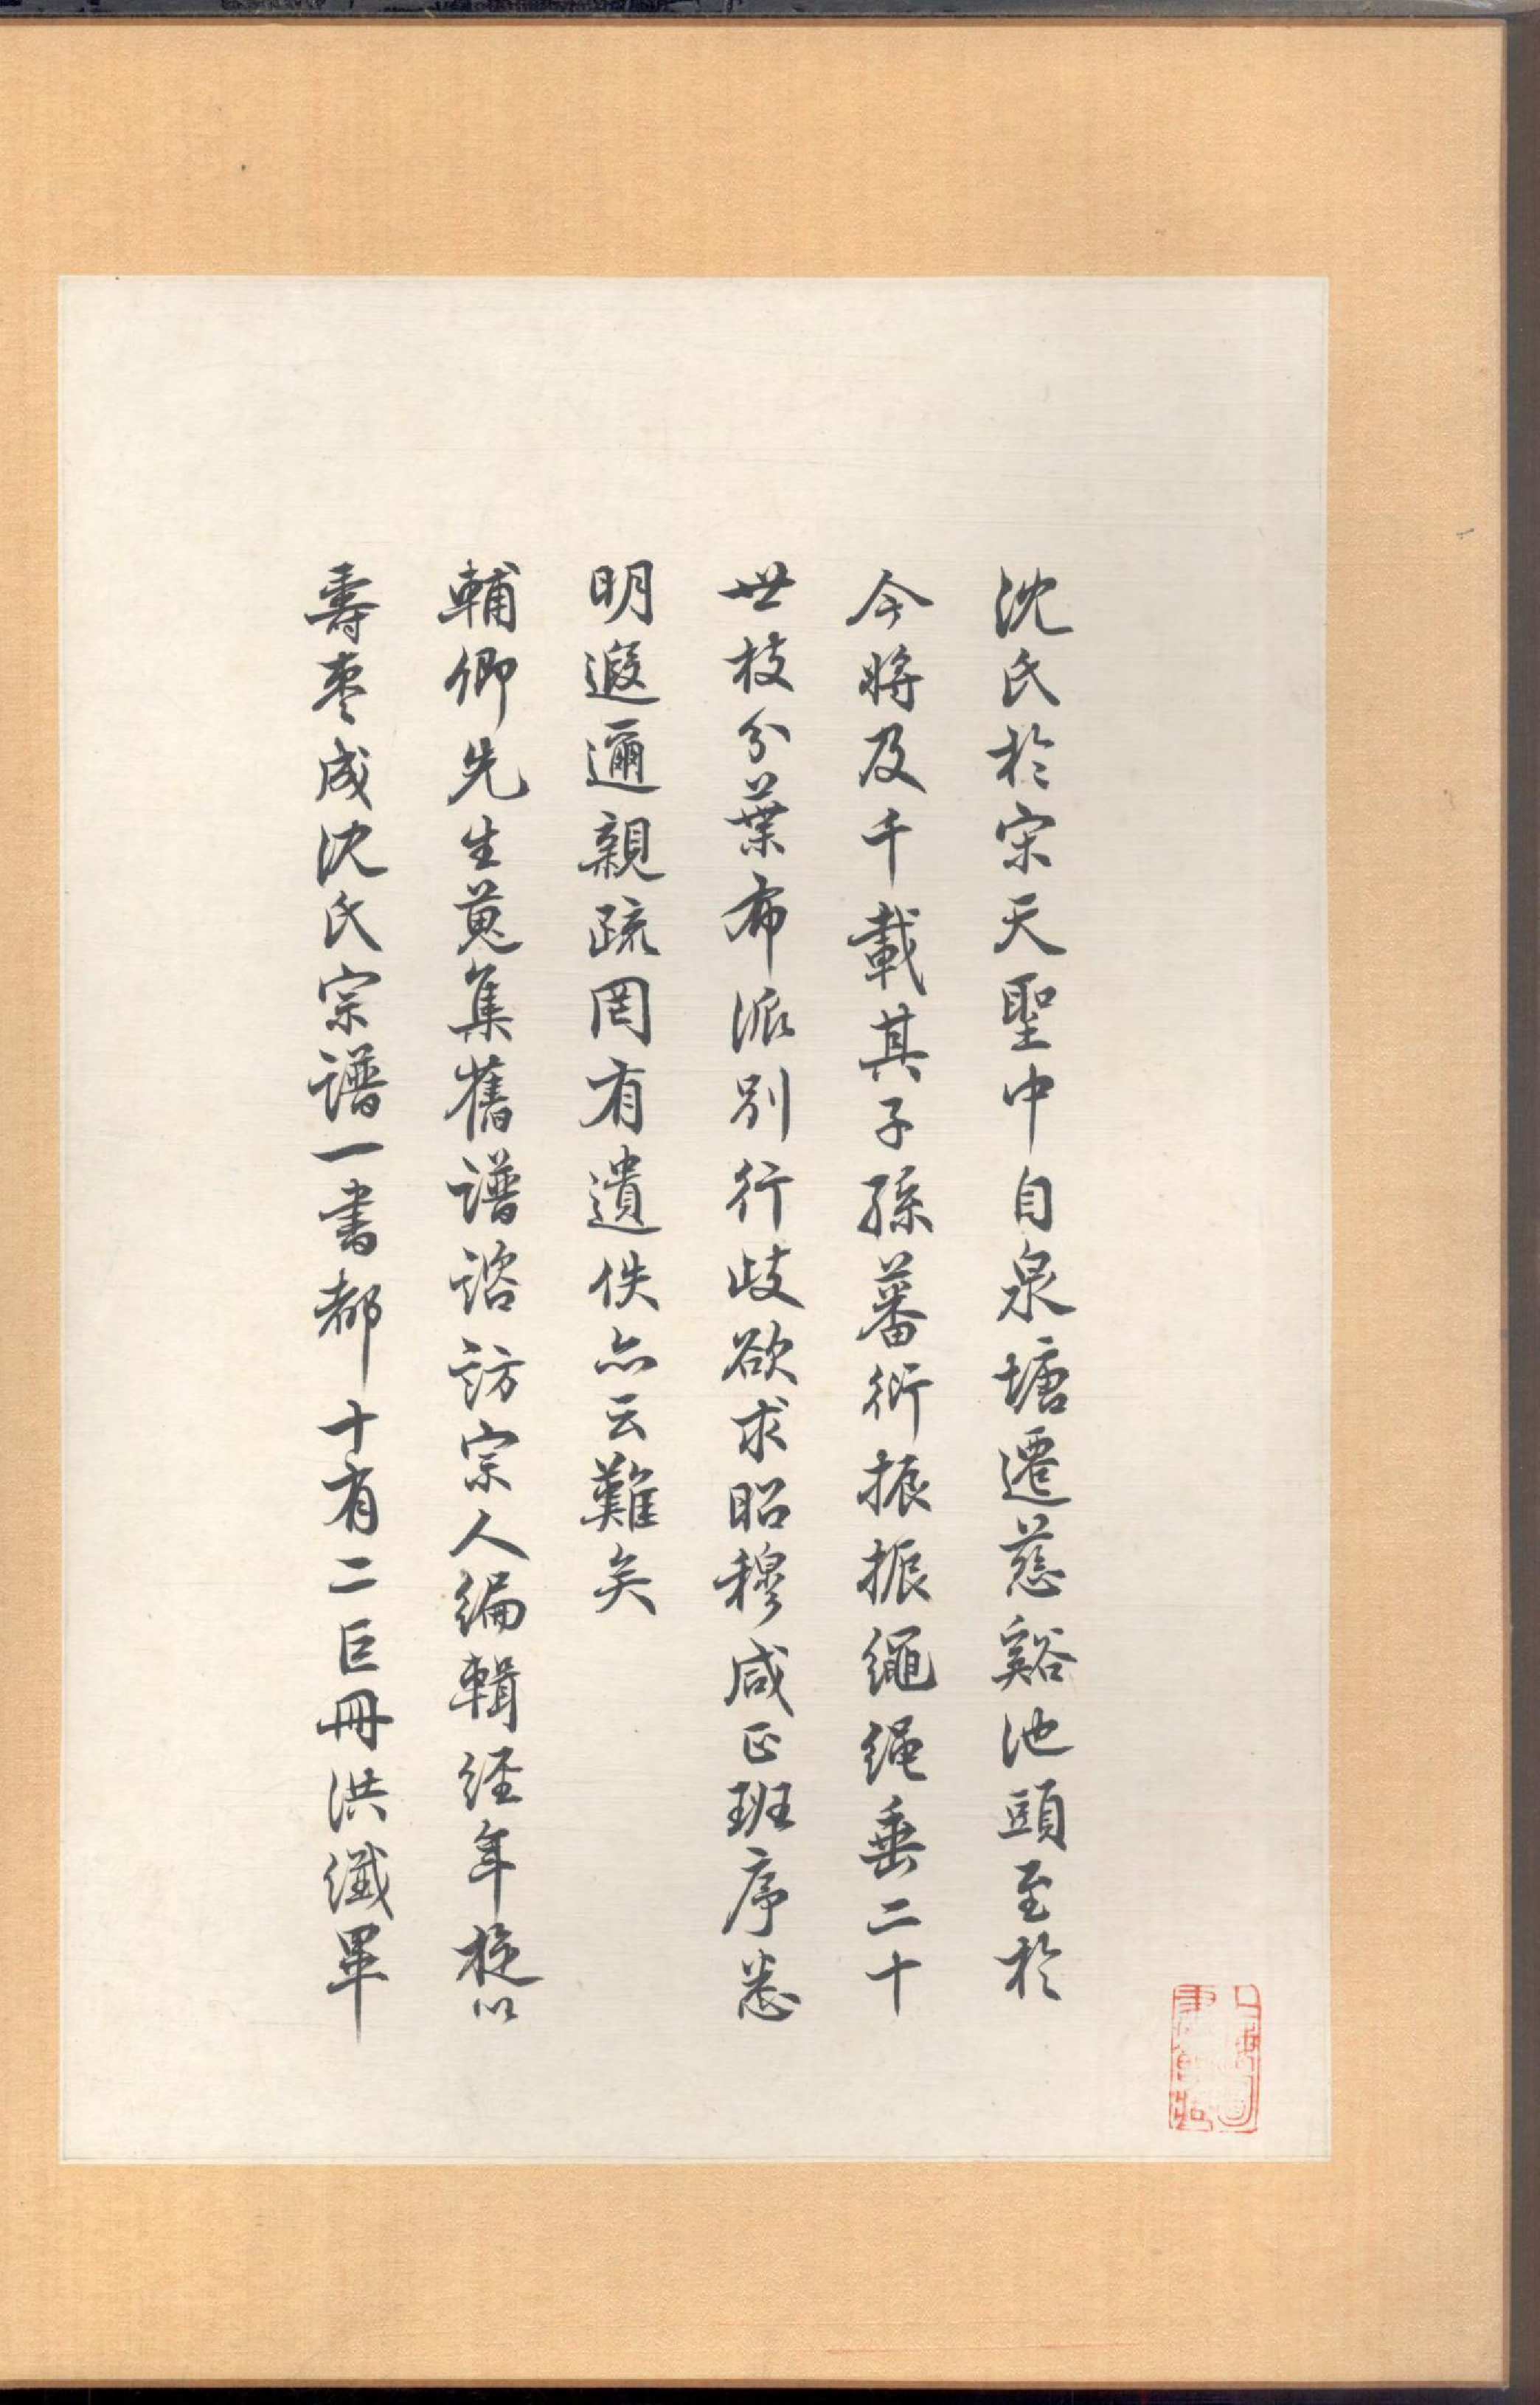 沈氏於宋天聖中自泉塘遷慈谿池頭至於
今將及千載其子孫蕃衍振振繩繩垂二十
世枝分葉布派別行歧欲求昭穆咸正班序悉
明遐邇親疏罔有遺佚亦云難矣
輔卿先生蒐集舊譜諮訪宗人編輯經年旋以
壽棗成沈氏宗譜一書都十有二巨冊洪纖畢